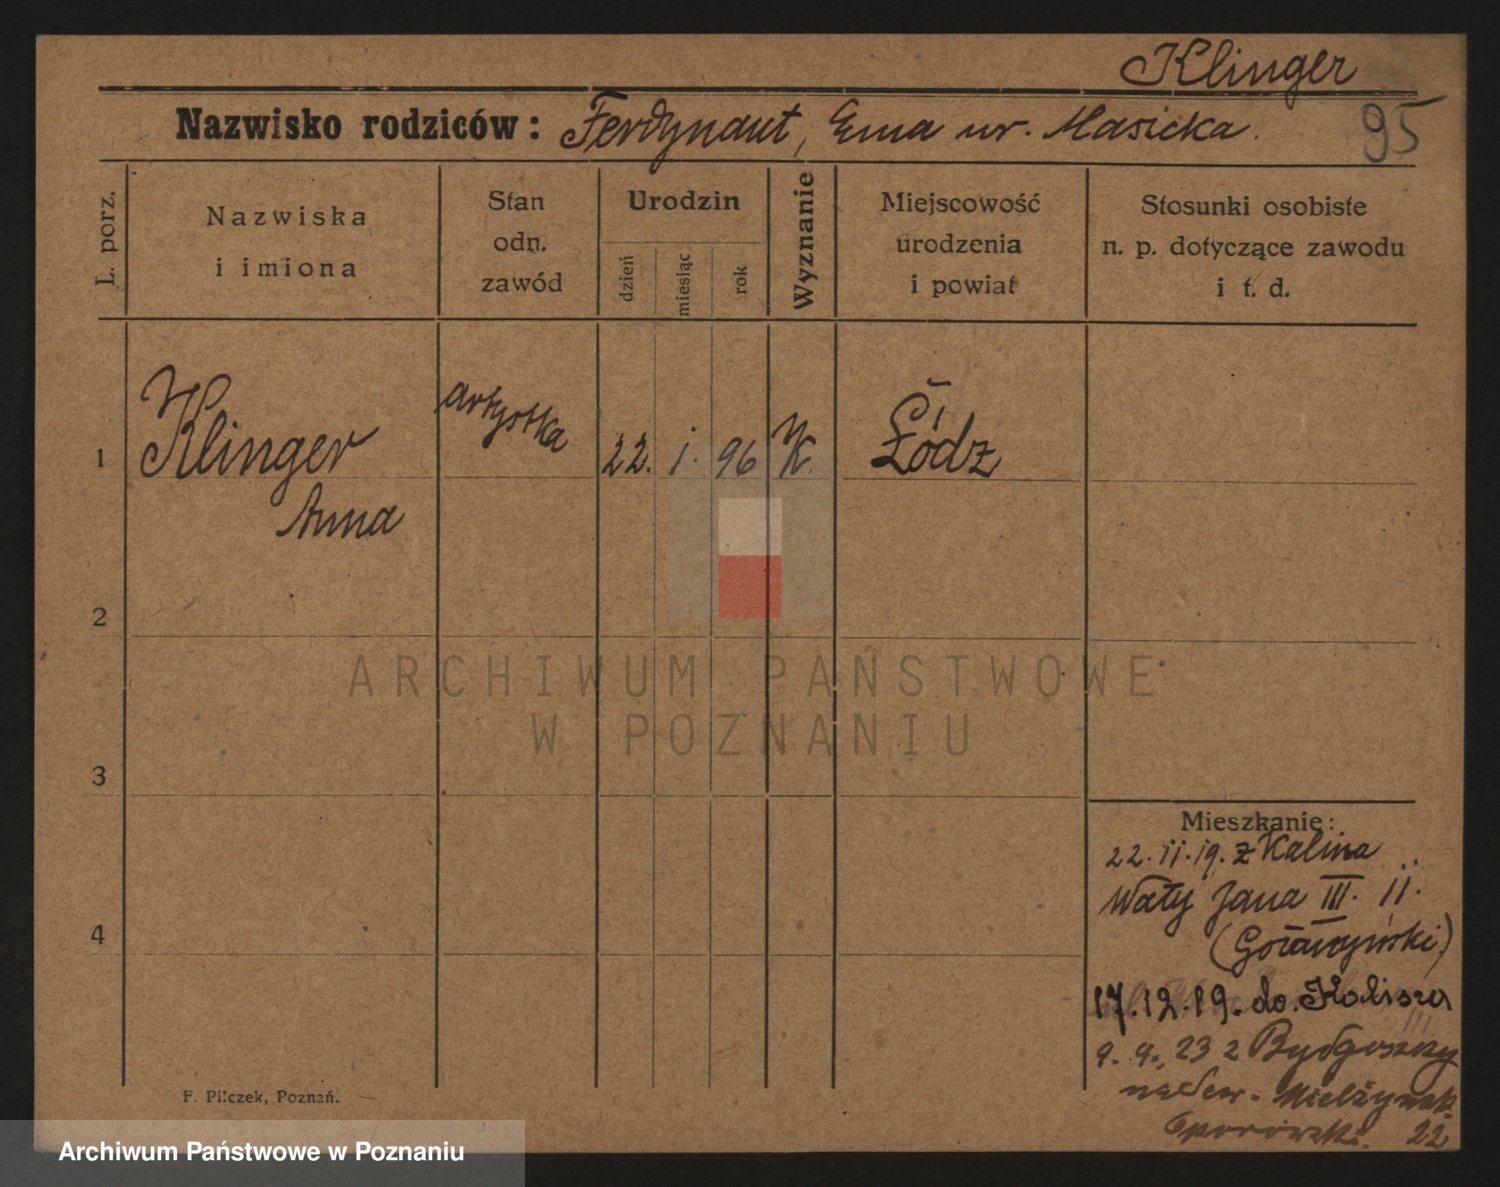 Klinger
95
Nazwisko rodziców: Ferdynant, Ema ur. Masicka.
L. porz.
Nazwiska
i imiona
Stan
odn.
zawód
Urodzin
dzień
miesiąc
rok
Wyznanie
Miejscowość
urodzenia
i powiat
Stosunki osobiste
n. p. dotyczące zawodu
i t. d.
1
Klinger
Anna
artystka
22. i. 96 K.
Łódz
2
3
4
ARCHIWUM PAŃSTWOWE
W POZNANIU
Mieszkanie:
22.11.19. z Kalina
Wały Jana III. 11.
17.12.19. do Kalisza
9. 4. 23 z Bydgoszczy
22
F. Pilczek, Poznań.
Archiwum Państwowe w Poznaniu